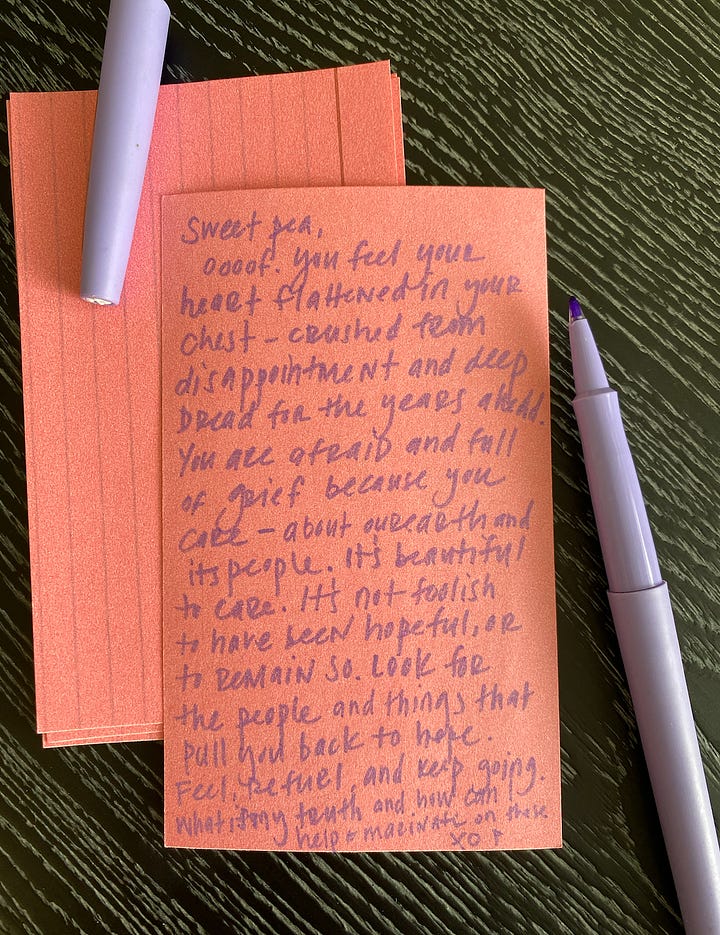 Sweet pea,
oooof. You feel your
heart flattened in your
chest - crushed from
disappointment and deep
dread for the years ahead.
You are afraid and full
of grief because you
care - about our earth and
its people. It's beautiful
to care. It's not foolish
to have been hopeful, or
to remain so. Look for
the people and things that
pull you back to hope.
Feel, refuel, and keep going.
What is my truth and how can I
help & marinate on these
XO